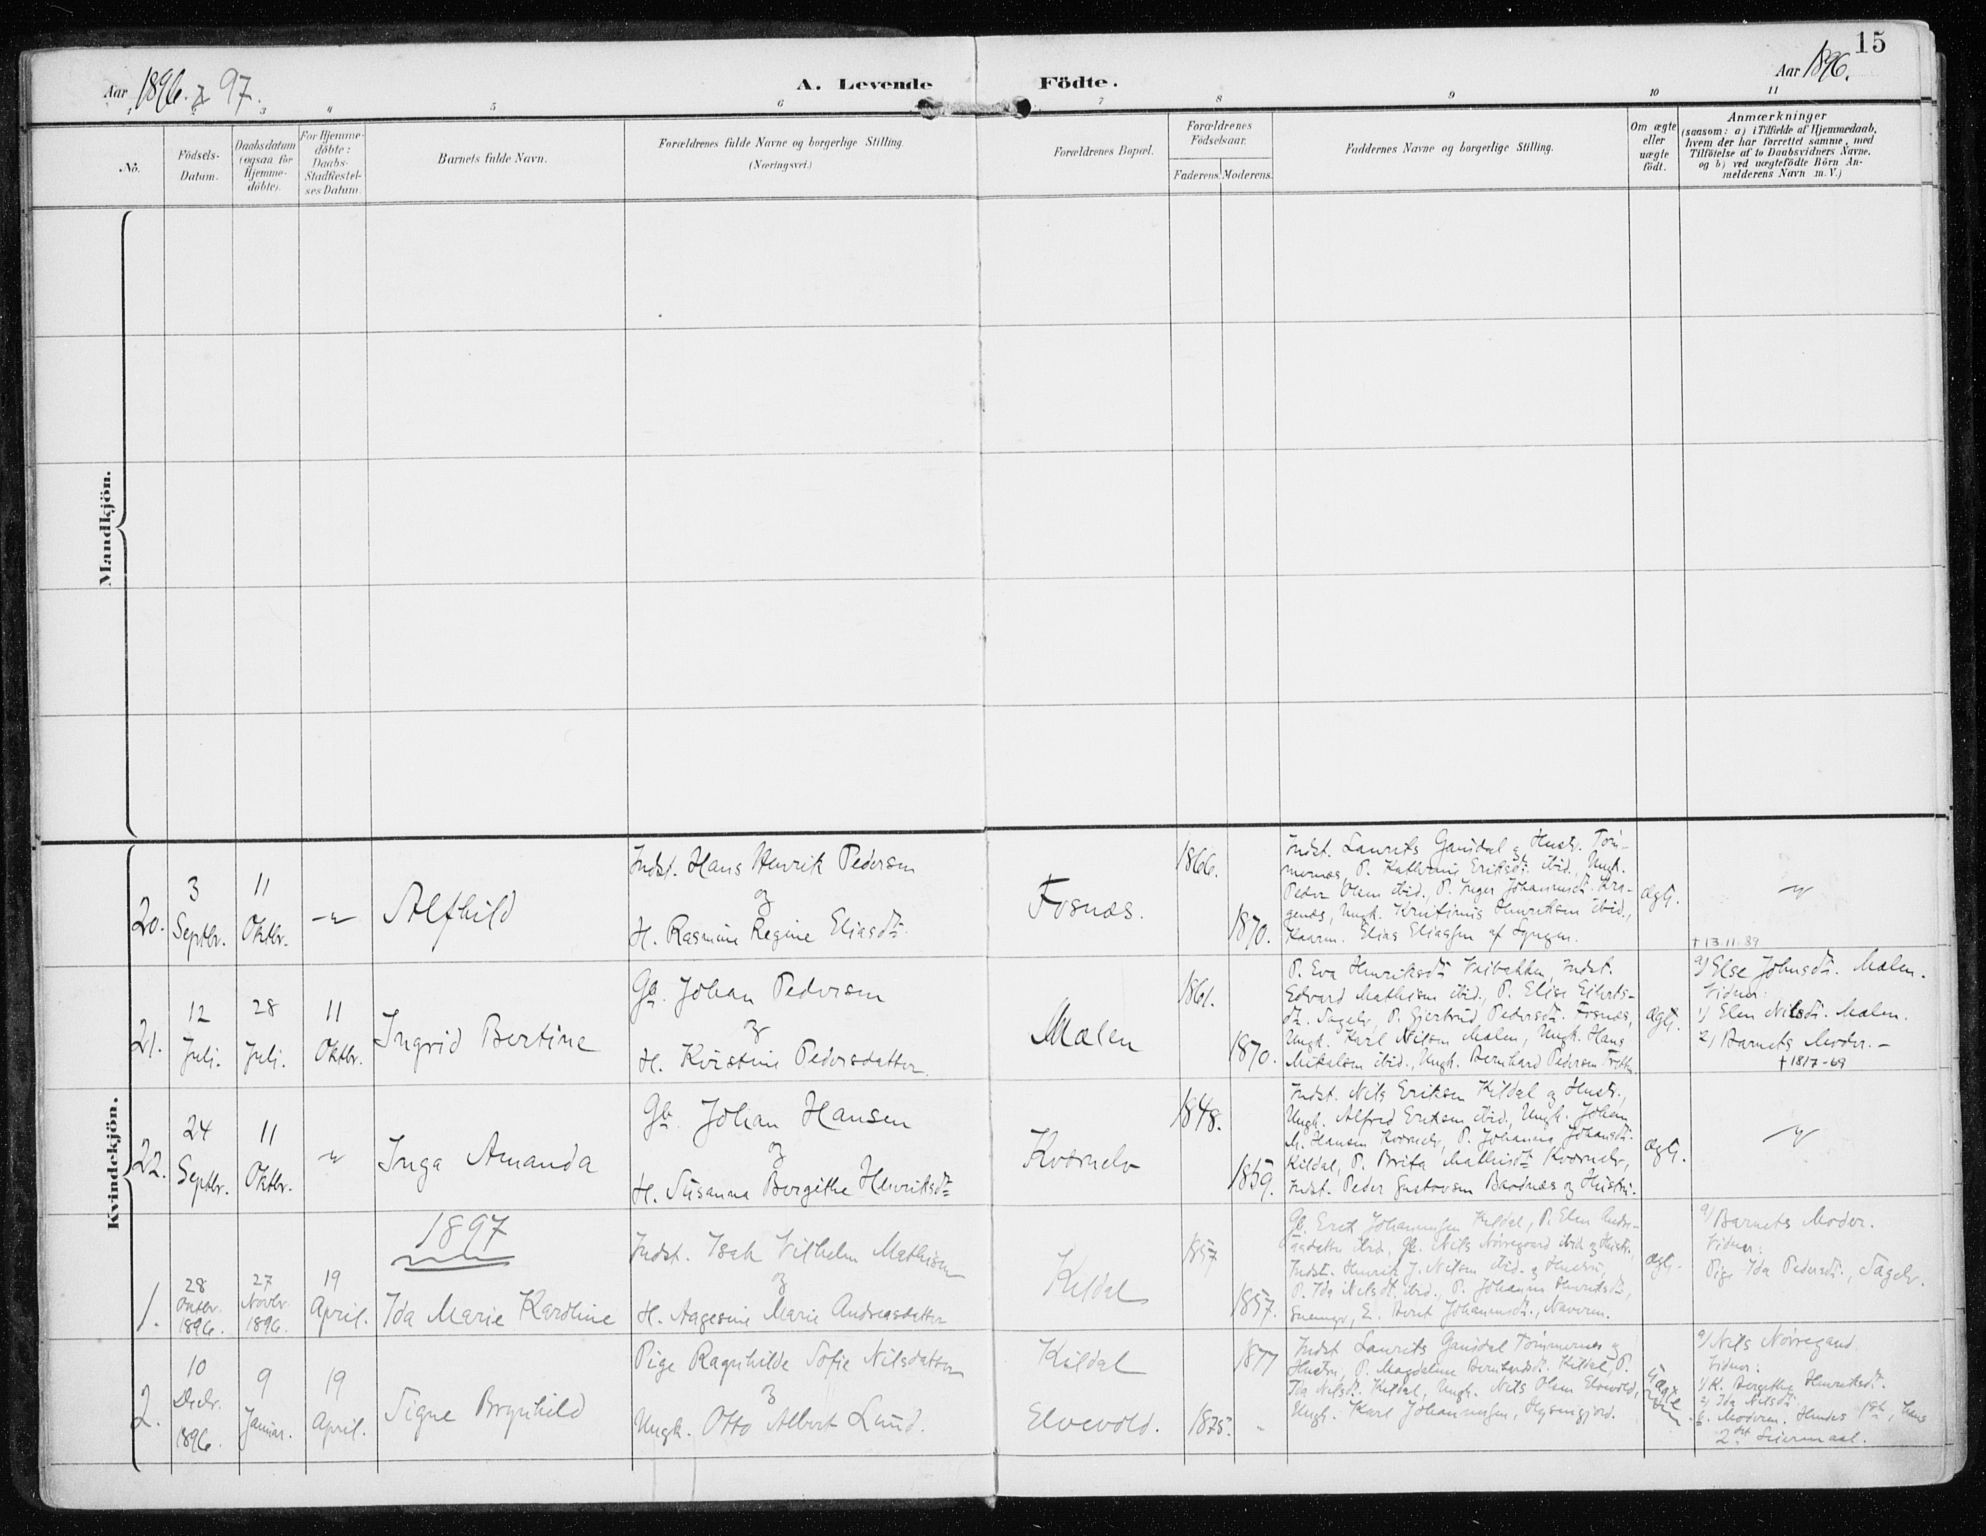 15
Aar 1896 & 97.
A. Levende Födte.
Aar 1896.
1 2 3 " 5 6 7 8 9 10 11
No.
Födsels-
Datum.
Daabsdatum
(ogsaa for
Hjemme-
döbte).
For Hjemme-
döbte:
Daabs-
Stadfæstel-
ses Datum.
Barnets fulde Navn.
Forældrenes fulde Navne og borgerlige Stilling.
(Næringsvei.)
Forældrenes Bopæl.
Forældrenes
Födselsaar.
Faderens. Moderens.
Faddernes Navne og borgerlige Stilling.
Om ægte
eller
uægte
födt.
Anmærkninger
(saasom: a) i Tilfælde af Hjemmedaab,
hvem der har forrettet samme, med
Tilföielse af to Daabsvidners Navne.
og b) ved uægtefödte Börn An-
melderens Navn m. V.)
Mandkjön.
Kvindekjön.
20.
3
Septbr.
11
Oktbr.
Alfhild
Indst. Hans Henrik Pedersen
og
H. Rasmine Regine Eliasdtr.
Fosnæs.
1866.
1870.
Indst. Laurits Gausdal & Hustr. Tøm-
mernæs, P. Kathrine Eriksdtr. ibid., Ungk.
Peder Olsen ibid., P. Inger Johannesdtr. Kra-
genæs, Ungk. Kristinus Henriksen ibid.,
Elias Eliassen af Lyngen.
ægt.
21.
12
Juli.
28
Juli.
11
Oktbr.
Ingrid Bertine
Gb. Johan Pedersen
og
H. Kristine Pedersdatter.
Mælen
1861.
1870.
P. Eva Henriksdtr. Indst.
Edvard Mathisen ibid., P. Elise Eilerts-
dtr. Sagelv, P. Gjertrud Pedersdtr. Fosnæs,
Ungk. Karl Nilsen Mælen, Ungk. Hans
Mikalsen ibid., Ungk. Bernhard Pedersen
ægt.
+ 13.11.89
a) Else Johnsdtr. Mælen.
Vidner:
1) Elen Nilsdtr. Mælen.
2) Barnets Moder. -
+ 1817-69
22.
24
Septbr.
11
Oktbr.
Inga Amanda
Gb. Johan Hansen
og
H. Susanna Bergithe Henriksdtr.
Kværnelv
1848.
1859.
Indst. Nils Eriksen Kildal og Hustr.,
Ungk. Alfred Eriksen ibid., Ungk. Johan
M. Hansen Kværnelv, P. Johanna Johansdtr.
Kildal, P. Brita Mathisdtr. Kværnelv,
Indst. Peder Gustavsen Bardnæs og Hustru.
ægt.
1897
1.
28
Oktbr.
1896.
27
Novbr.
1896.
19
April.
Ida Marie Karoline
Indst. Isak Vilhelm Mathisen
og
H. Aagesine Marie Andreasdatter
Kildal
1857
1857.
Gb. Erik Johannesen Kildal, P. Elen Andre-
asdatter ibid., Gb. Nils Nørregaard ibid og Hustr.,
Indst. Henrik J. Nilsen ibid. og Hustru,
P. Ida Nilsdt. ibid., P. Johanna Henriksdt.,
E. Berit Johannesdt., Naveren.
ægt.
a) Barnets Moder.
Vidner:
Pige Ida Pedersdt., Sagelv.
2.
10
Decbr.
1896
9
Januar.
19
April.
Signe Brynhild
Pige Ragnhilde Sofie Nilsdatter
og
Ungk. Otto Albert Lund.
Kildal
Elvevold.
1877
1875.
Indst Laurits Gausdal Tømmernes &
Hustru, P. Magdalene Bernhardsdt. Kildal, P.
Ida Nilsdt. Kildal, Ungk. Nils Olsen Elvevold,
Ungk. Karl Johannesen,
Uægte
a) Nils Nørregaard.
Vidner:
1) K. Bergithe Henriksdt.
2) Ida Nilsdt.
b. Moderen. Hendes 1ste, hans
2det Leiermaal.